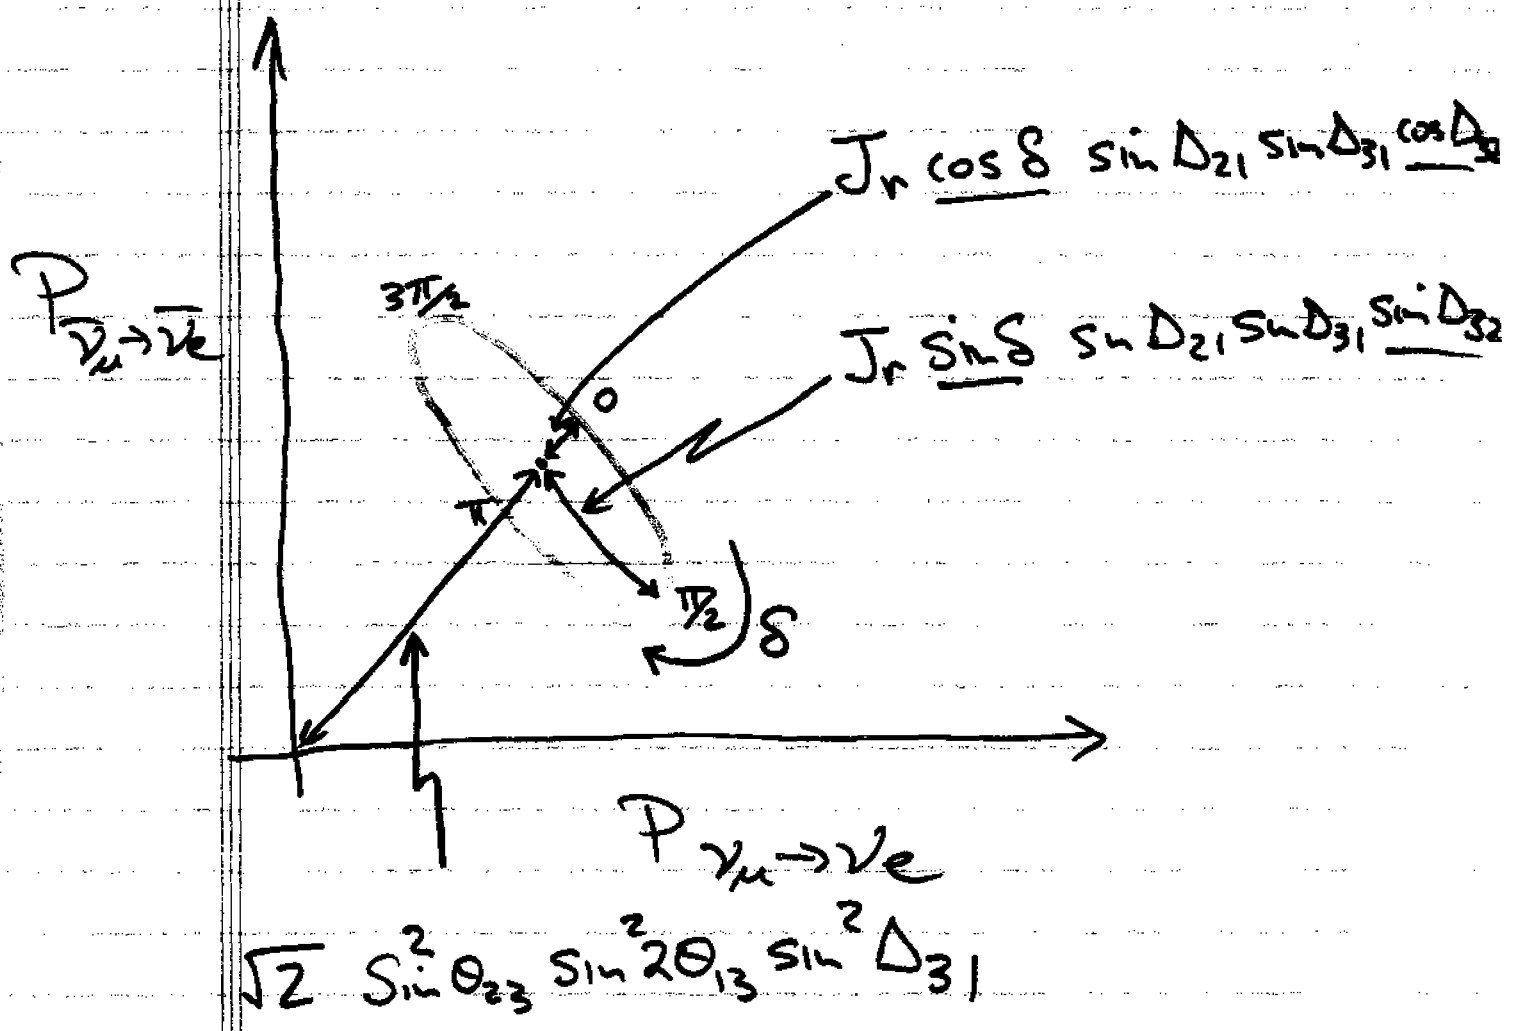 J_r cos δ sin Δ_21 sin Δ_31 cos Δ_32
P_ν̄_μ→ν̄_e
3π/2
J_r sin δ sin Δ_21 sin Δ_31 sin Δ_32
0
π
π/2
δ
P_ν_μ→ν_e
√2 sin² θ_23 sin² 2θ_13 sin² Δ_31